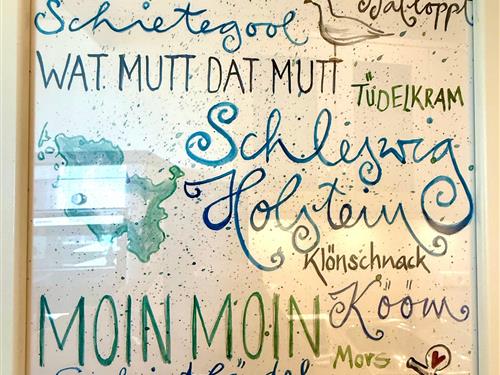 Schietegool
Dat löppt
WAT MUTT DAT MUTT
TÜDELKRAM
Schleswig
Holstein
Klönschnack
MOIN MOIN
Kööm
Mors